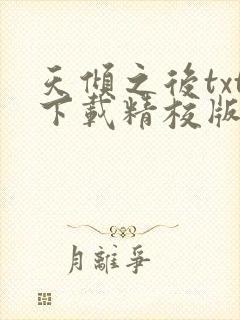 天傾之後txt
下載精校版
月離爭